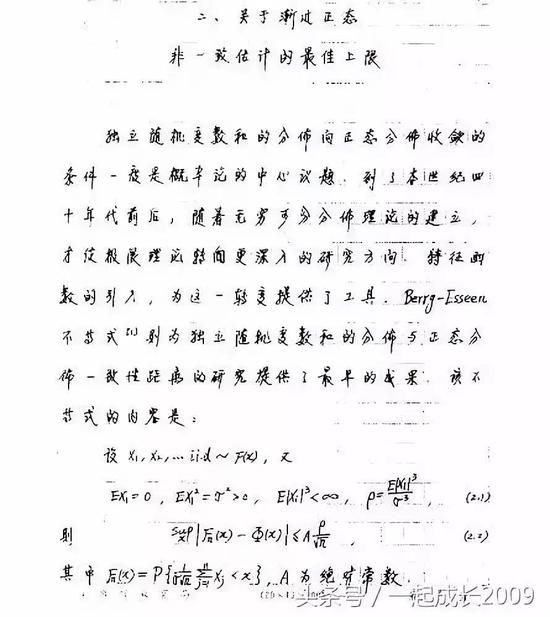 二、关于渐近正态
非一致估计的最佳上限
独立随机变数和的分佈向正态分佈收敛的
条件一度是概率论的中心议题．到了本世纪四
十年代前后，随着无穷可分分佈理论的建立，
才使极限理论转向更深入的研究方向．特征函
数的引入，为这一转变提供了工具．Berry-Esseen
不等式[1]则为独立随机变数和的分佈与正态分
佈一致性距离的研究提供了最早的成果．该不
等式的内容是：
设 X₁, X₂, … iid ~ F(x)，又
EX₁=0， EX₁²=σ²>0， E|X₁|³<∞， ρ=E|X₁|³/σ³， (2.1)
则 sup_x|Fₙ(x)-Φ(x)|≤A ρ/√n， (2.2)
其中 Fₙ(x)=P{1/(σ√n) Σⁿⱼ₌₁ Xⱼ<x}，A为绝对常数．
头条号／一起成长2009